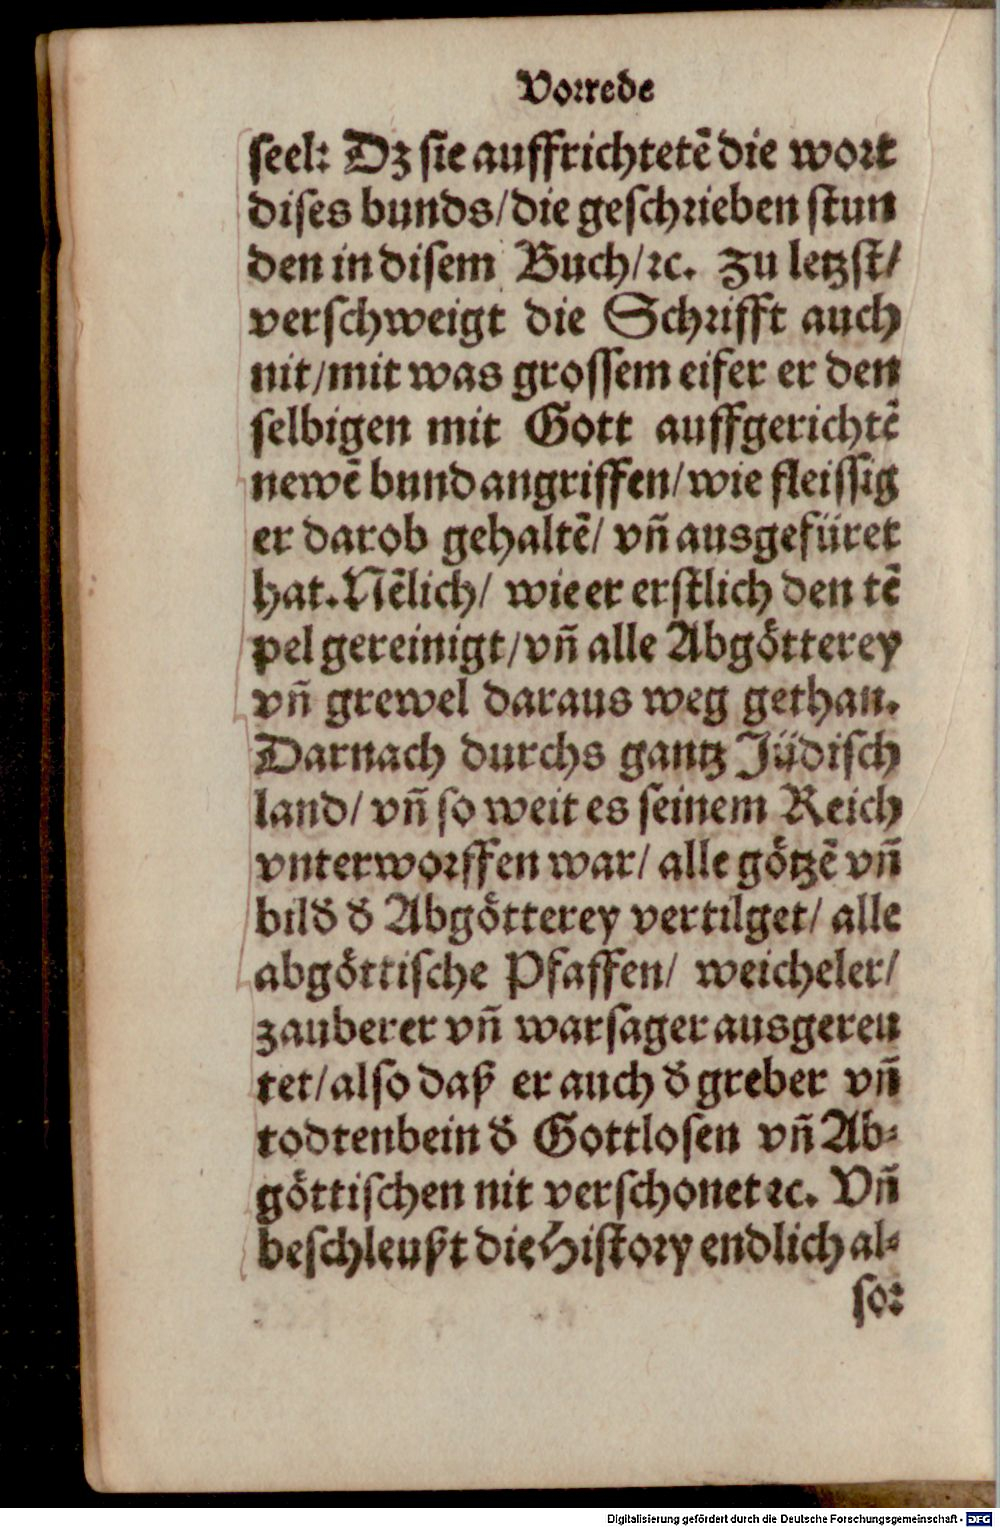 Vorrede
seel: Dz sie auffrichtetē die wort
dises bunds/die geschrieben stun
den in disem Buch/ꝛc. Zu letzst/
verschweigt die Schrifft auch
nit/mit was grossem eifer er den
selbigen mit Gott auffgerichtē
newē bund angriffen/wie fleissig
er darob gehaltē/ vn̄ ausgefüret
hat. Nēlich/ wie er erstlich den tē
pel gereinigt/vn̄ alle Abgötterey
vn̄ grewel daraus weg gethan.
Darnach durchs gantz Jüdisch
land/ vn̄ so weit es seinem Reich
vnterworffen war/ alle götzē vn̄
bild̕ d̕ Abgötterey vertilget/ alle
abgöttische Pfaffen/ weicheler/
zauberer vn̄ warsager ausgereu
tet/also daß er auch d̕ greber vn̄
todtenbein d̕ Gottlosen vn̄ Ab⸗
göttischen nit verschonet ꝛc. Vn̄
beschleußt die History endlich al⸗
so:
Digitalisierung gefördert durch die Deutsche Forschungsgemeinschaft - DFG